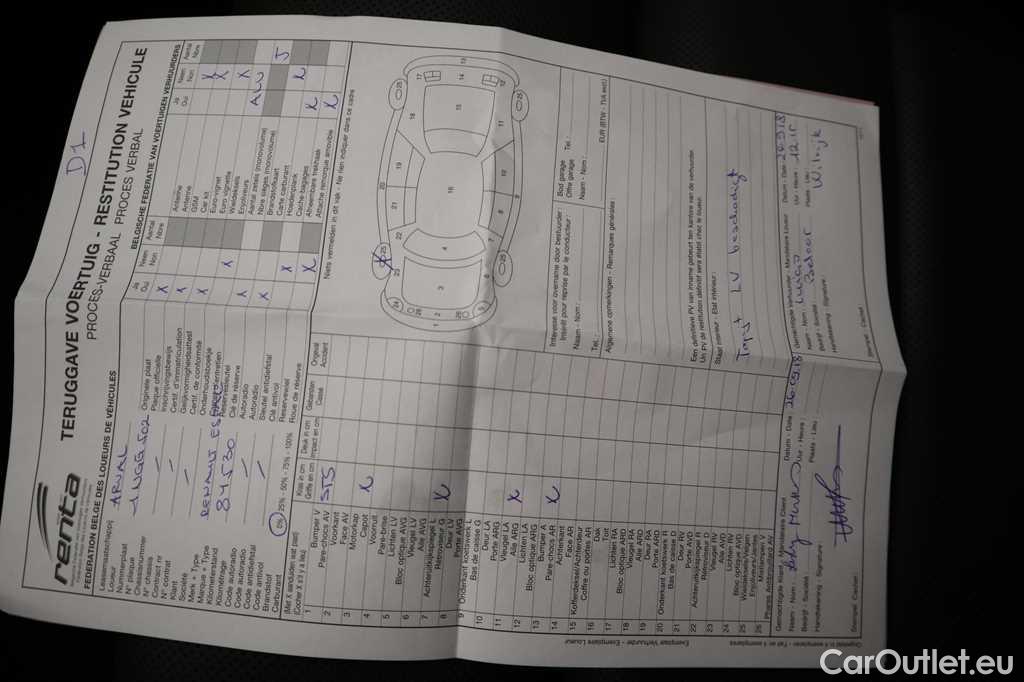 D1
renta
TERUGGAVE VOERTUIG - RESTITUTION VEHICULE
PROCES-VERBAAL PROCES VERBAL
FEDERATION BELGE DES LOUEURS DE VÉHICULES
BELGISCHE FEDERATIE VAN VOERTUIGEN VERHUURDERS
Leasemaatschappij
Loueur
ARVAL
Nummerplaat
N° plaque
1UGG502
Chassisnummer
N° chassis
Contract nr
N° contrat
Klant
Société
Merk + Type
Marque + Type
RENAULT
Kilometerstand
Kilométrage
84530
Code autoradio
Code autoradio
Code antidiefstal
Code antivol
Brandstof
Carburant
0% - 25% - 50% - 75% - 100%
Ja
Oui
Neen
Non
Aantal
Nbre
Originele plaat
Plaque officielle
Inschrijvingsbewijs
Certif. d'immatriculation
Gelijkvormigheidsattest
Certif. de conformité
Onderhoudsboekje
Reservesleutel
Clé de réserve
Autoradio
Autoradio
Sleutel antidiefstal
Clé antivol
Reservewiel
Roue de réserve
Ja
Oui
Neen
Non
Aantal
Nbre
Antenne
Antenne
GSM
Car kit
Euro-vignet
Euro vignette
Wieldeksels
Enjoliveurs
ALU
Aantal zetels (monovolume)
Nbre sièges (monovolume)
5
Brandstofkaart
Carte carburant
Hoedenplank
Cache-bagages
Afneembare trekhaak
Attache remorque amovible
Niets vermelden in dit vak - Ne rien indiquer dans ce cadre
(Met X aanduiden wat past)
(Cocher X s'il y a lieu)
Kras in cm
Griffe en cm
Deuk in cm
Impact en cm
Gebarsten
Cassé
Ongeval
Accident
1 Bumper V
Pare-chocs AV
STS
2 Voorkant
Face AV
3 Motorkap
Capot
X
4 Voorruit
Pare-brise
5 Lichten LV
Bloc optique AVG
6 Vleugel LV
Aile AVG
7 Achteruitkijkspiegel L
Rétroviseur G
X
8 Deur LV
Porte AVG
9 Onderkant koetswerk L
Bas de caisse G
10 Deur LA
Porte ARG
11 Vleugel LA
Aile ARG
X
12 Lichten LA
Bloc optique ARG
13 Bumper A
Pare-chocs AR
X
14 Achterkant
Face AR
15 Kofferdeksel/Achterdeur
Coffre ou porte AR
16 Dak
Toit
17 Lichten RA
Bloc optique ARD
18 Vleugel RA
Aile ARD
19 Deur RA
Porte ARD
20 Onderkant koetswerk R
Bas de caisse D
21 Deur RV
Porte AVD
22 Achteruitkijkspiegel R
Rétroviseur D
23 Vleugel RV
Aile AVD
24 Lichten RV
Bloc optique AVD
25
26
Interesse voor overname door bestuurder
Intérêt pour reprise par le conducteur :
Naam - Nom :
Tel. :
Bod garage
Offre garage
Tel. :
Naam - Nom :
EUR (BTW - TVA excl)
Algemene opmerkingen - Remarques générales :
Een definitieve PV van inname gebeurt ten kantore van de verhuurder.
Un PV de restitution définitif sera établi chez le loueur.
Staat interieur - Etat intérieur :
Tapijt LV beschadigt
Gemachtigde Klant - Mandataire Client
Naam - Nom :
Bedrijf - Société :
Handtekening - Signature :
Stempel - Cachet :
Datum - Date : 26.09.18
Uur - Heure :
Plaats - Lieu :
Gemachtigde Verhuurder - Mandataire Loueur
Naam - Nom :
Bedrijf - Société :
Handtekening - Signature :
Stempel - Cachet :
Datum - Date : 26.9.18
Uur - Heure : 12
Plaats - Lieu :
Wilrijk
Exemplaar Verhuurder - Exemplaire Loueur
CarOutlet.eu